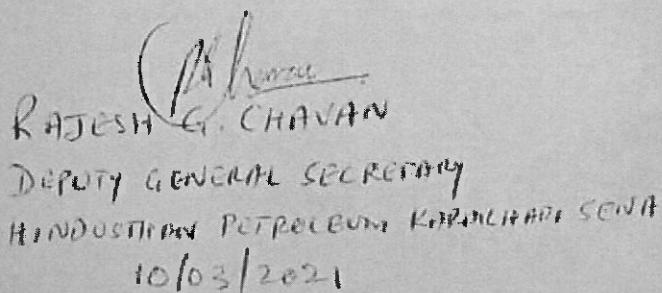 RAJESH G. CHAVAN
DEPUTY GENERAL SECRETARY
HINDUSTHAN PETROLEUM KARMCHARI SENA
10/03/2021